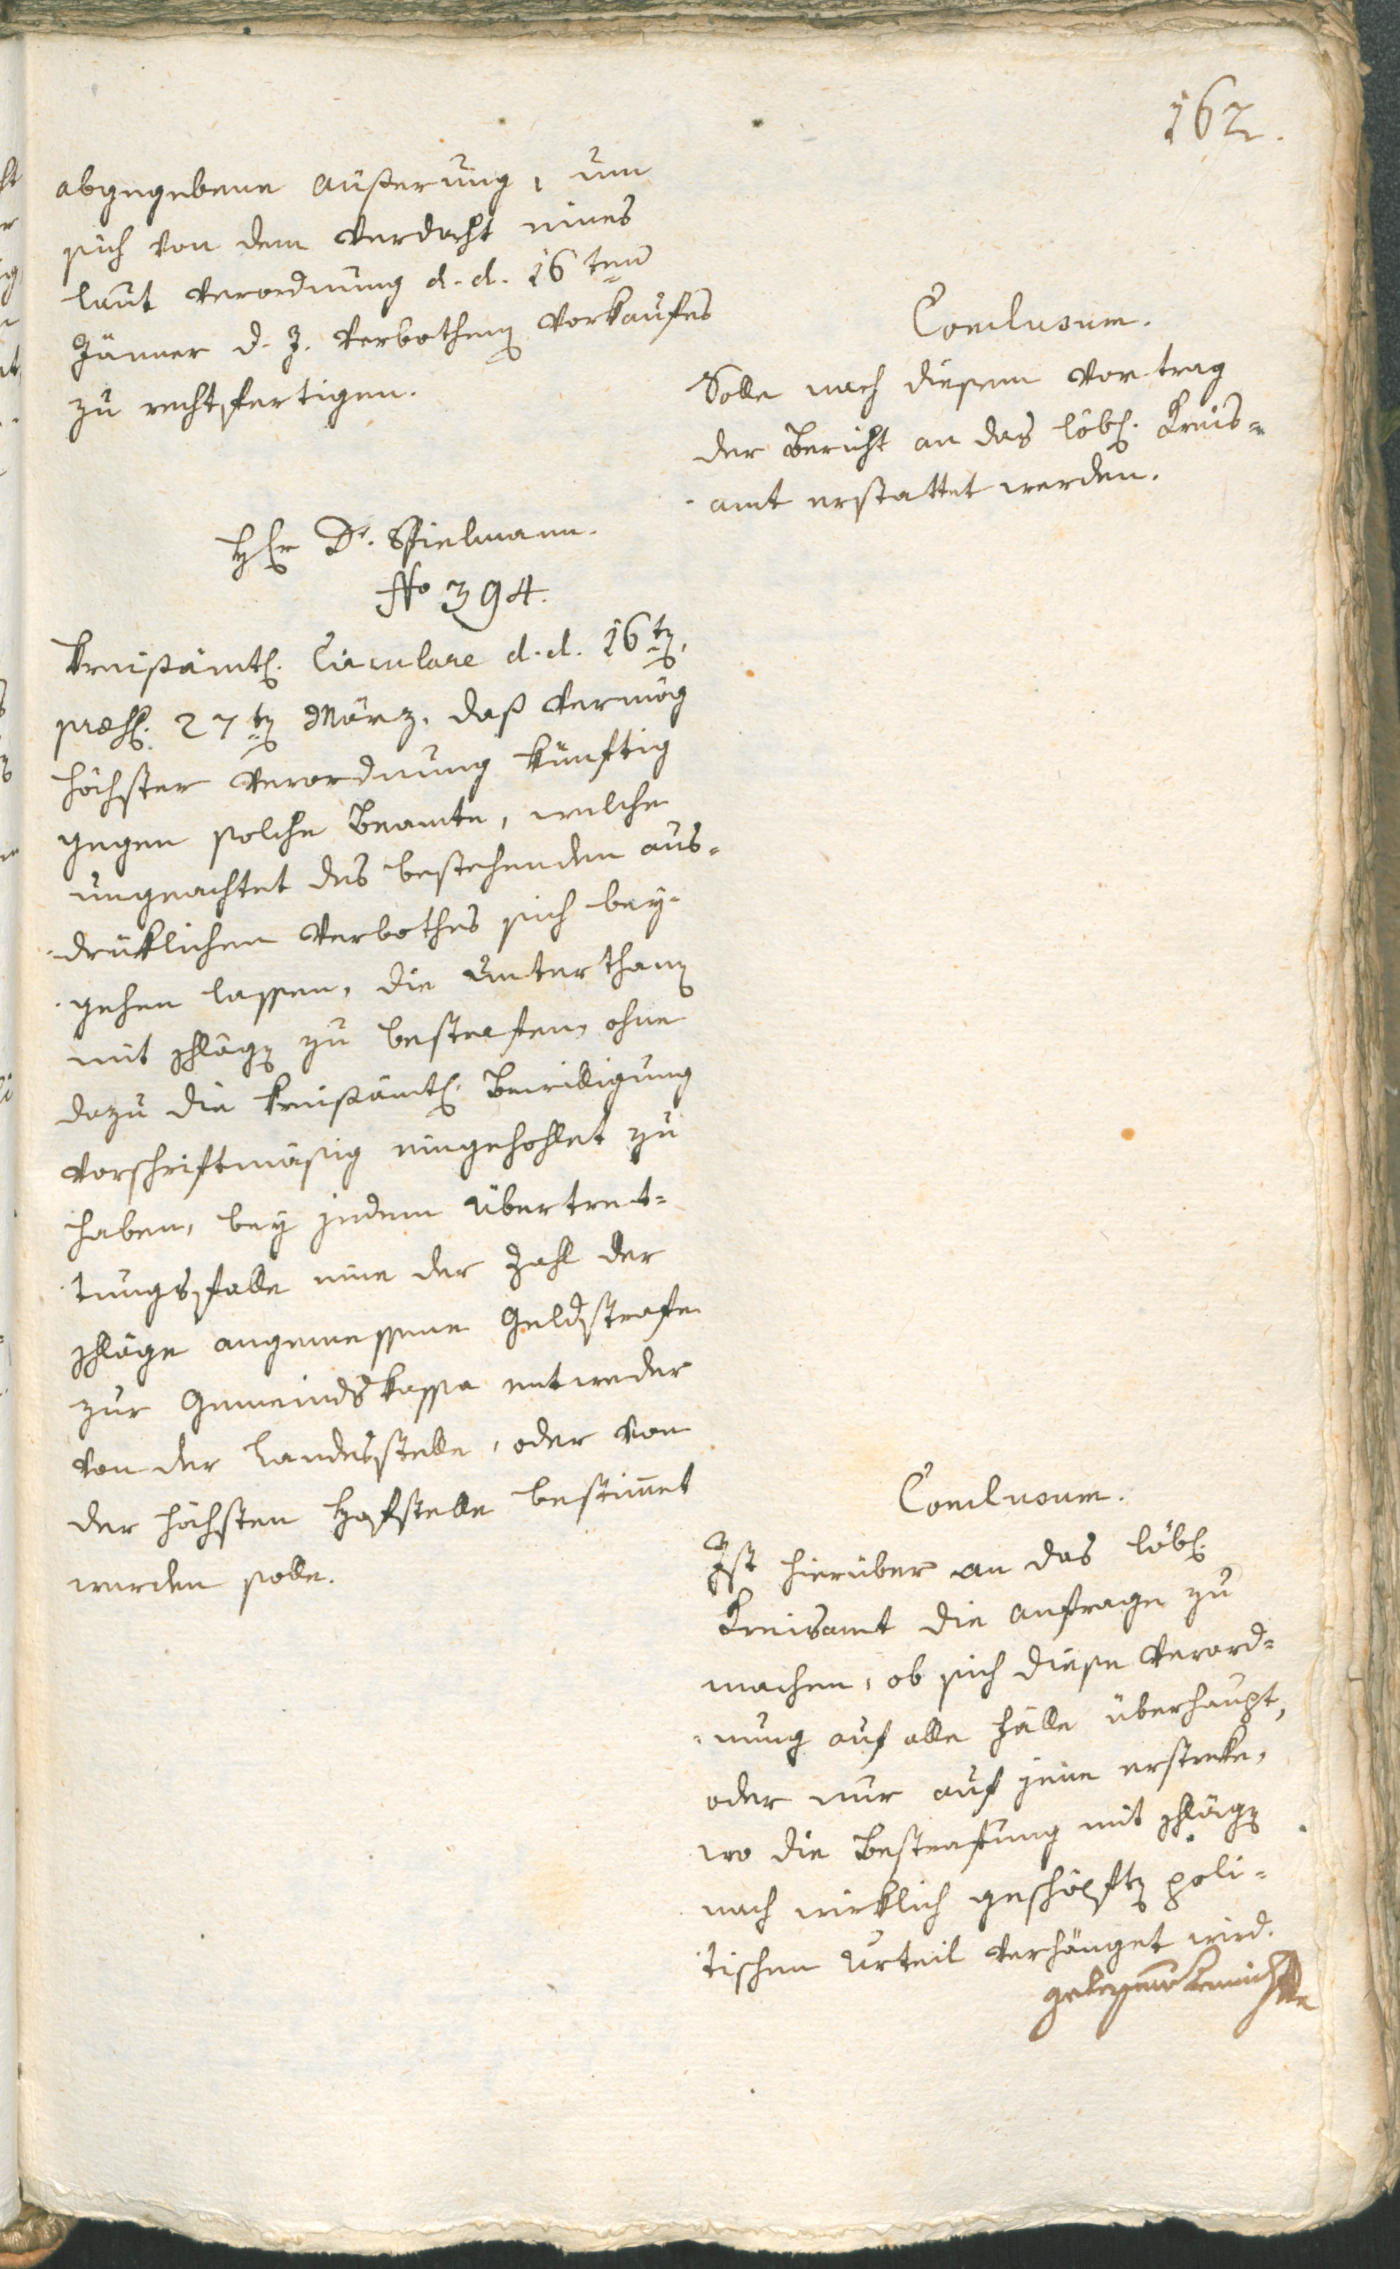 162.
abgegebene Äußerung, um
sich von dem Verdacht eines
laut Verordnung d. d. 16ten
Jänner d. J. verbothenen Vorkaufes
zu rechtfertigen.
Conclusum.
Solle nach diesem Vortrag
der Bericht an das löbl. Kreis=
amt erstattet werden.
Hr Dr. Spielmann.
No 394.
Kreisämtl. Circulare d. d. 16ten,
præs. 27ten März. daß vermög
höchster Verordnung künftig
gegen solche Beamte, welche
ungeachtet des bestehenden aus=
drüklichen Verbothes sich bey=
gehen lassen, die Unterthanen
mit Schlägen zu bestrafen, ohne
dazu die kreisämtl. Bewilligung
vorschriftmäsig eingehohlet zu
haben, bey jedem Übertret=
tungsfalle eine der Zahl der
Schläge angemessene Geldstrafe
zur Gemeindskassa entweder
von der Landesstelle, oder von
der höchsten Hofstelle bestimmet
werden solle.
Conclusum.
Ist hierüber an das löbl.
Kreisamt die Anfrage zu
machen, ob sich diese Verord=
nung auf alle Fälle überhaupt,
oder nur auf jene erstreke,
wo die Bestrafung mit Schlägen
nach wirklich geschöpften poli=
tischen Urteil verhänget wird.